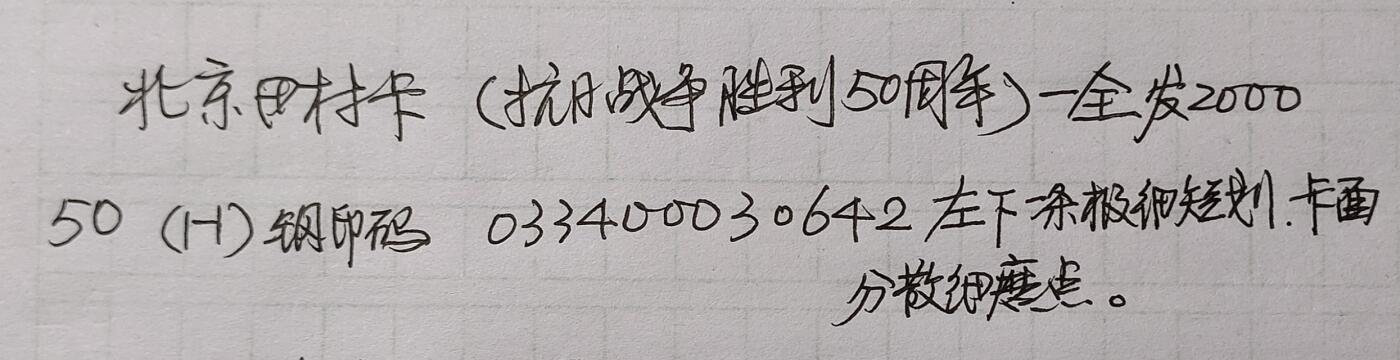 北京田村卡（抗日战争胜利50周年）一全发2000
50（1-1）钢印码 033400030642左下一条极细短划.卡面
分散细磨点。